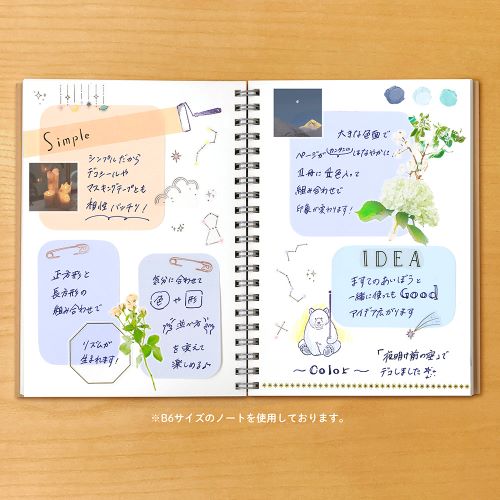 Simple
シンプルだから
デコシールや
マスキングテープとも
相性バッチリ!
正方形と
長方形の
組み合わせで
リズムが
生まれます!
気分に合わせて
色や形
並べ方
を変えて
楽しめる♪
大きな色面で
ページがカンタンにはなやかに
1冊に 色入って
組み合わせで
印象が変わります!
IDEA
ますてのあいぼうと
一緒に使ってもGood
アイデア広がります
~Color~
「夜明け前の空」で
デコしました
※B6サイズのノートを使用しております。